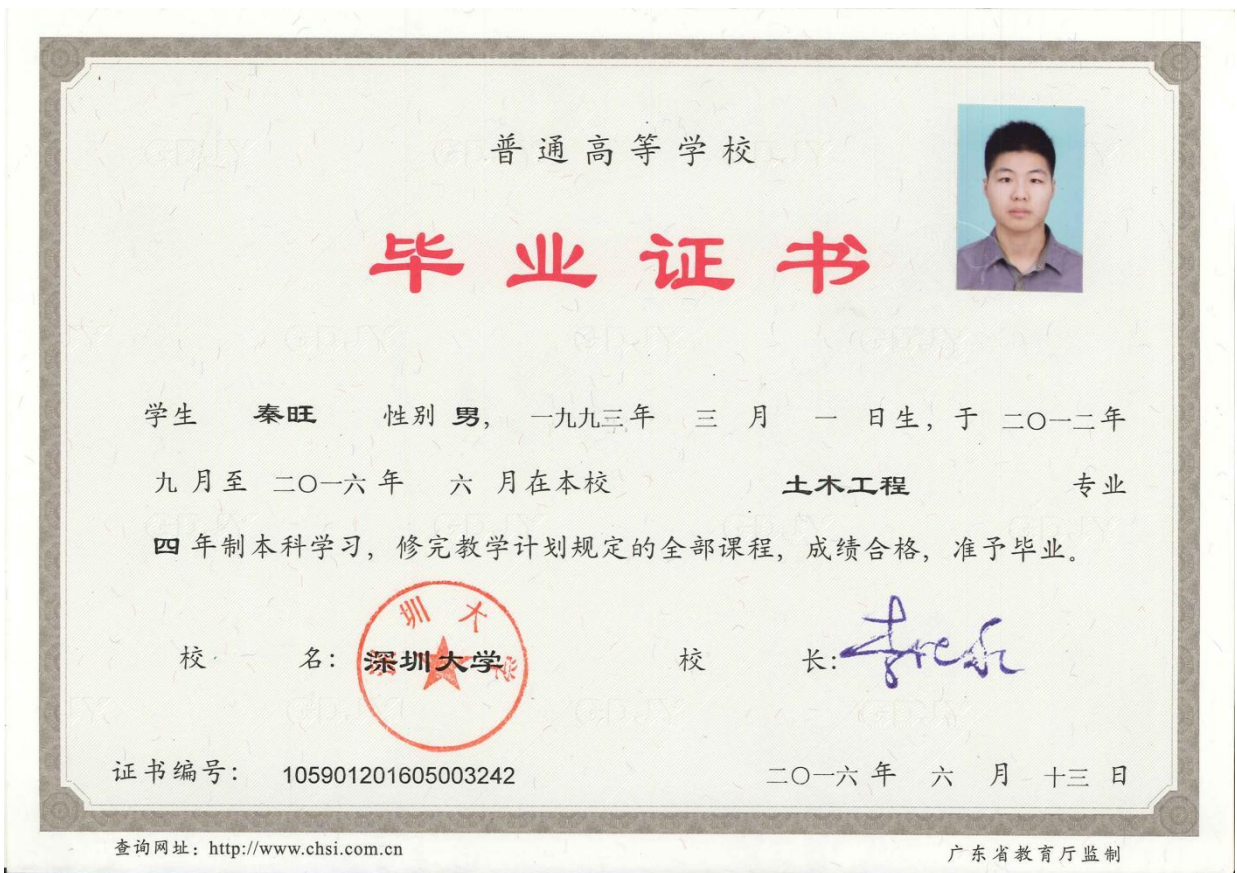 普通高等学校
毕业证书
学生 秦旺 性别 男, 一九九三年 三 月 一 日生, 于 二〇一二年
九 月至 二〇一六 年 六 月在本校 土木工程 专业
四 年制本科学习, 修完教学计划规定的全部课程, 成绩合格, 准予毕业。
校 名: 深圳大学 校 长:
深圳大学
证书编号: 105901201605003242 二〇一六 年 六 月 十三 日
查询网址: http://www.chsi.com.cn 广东省教育厅监制